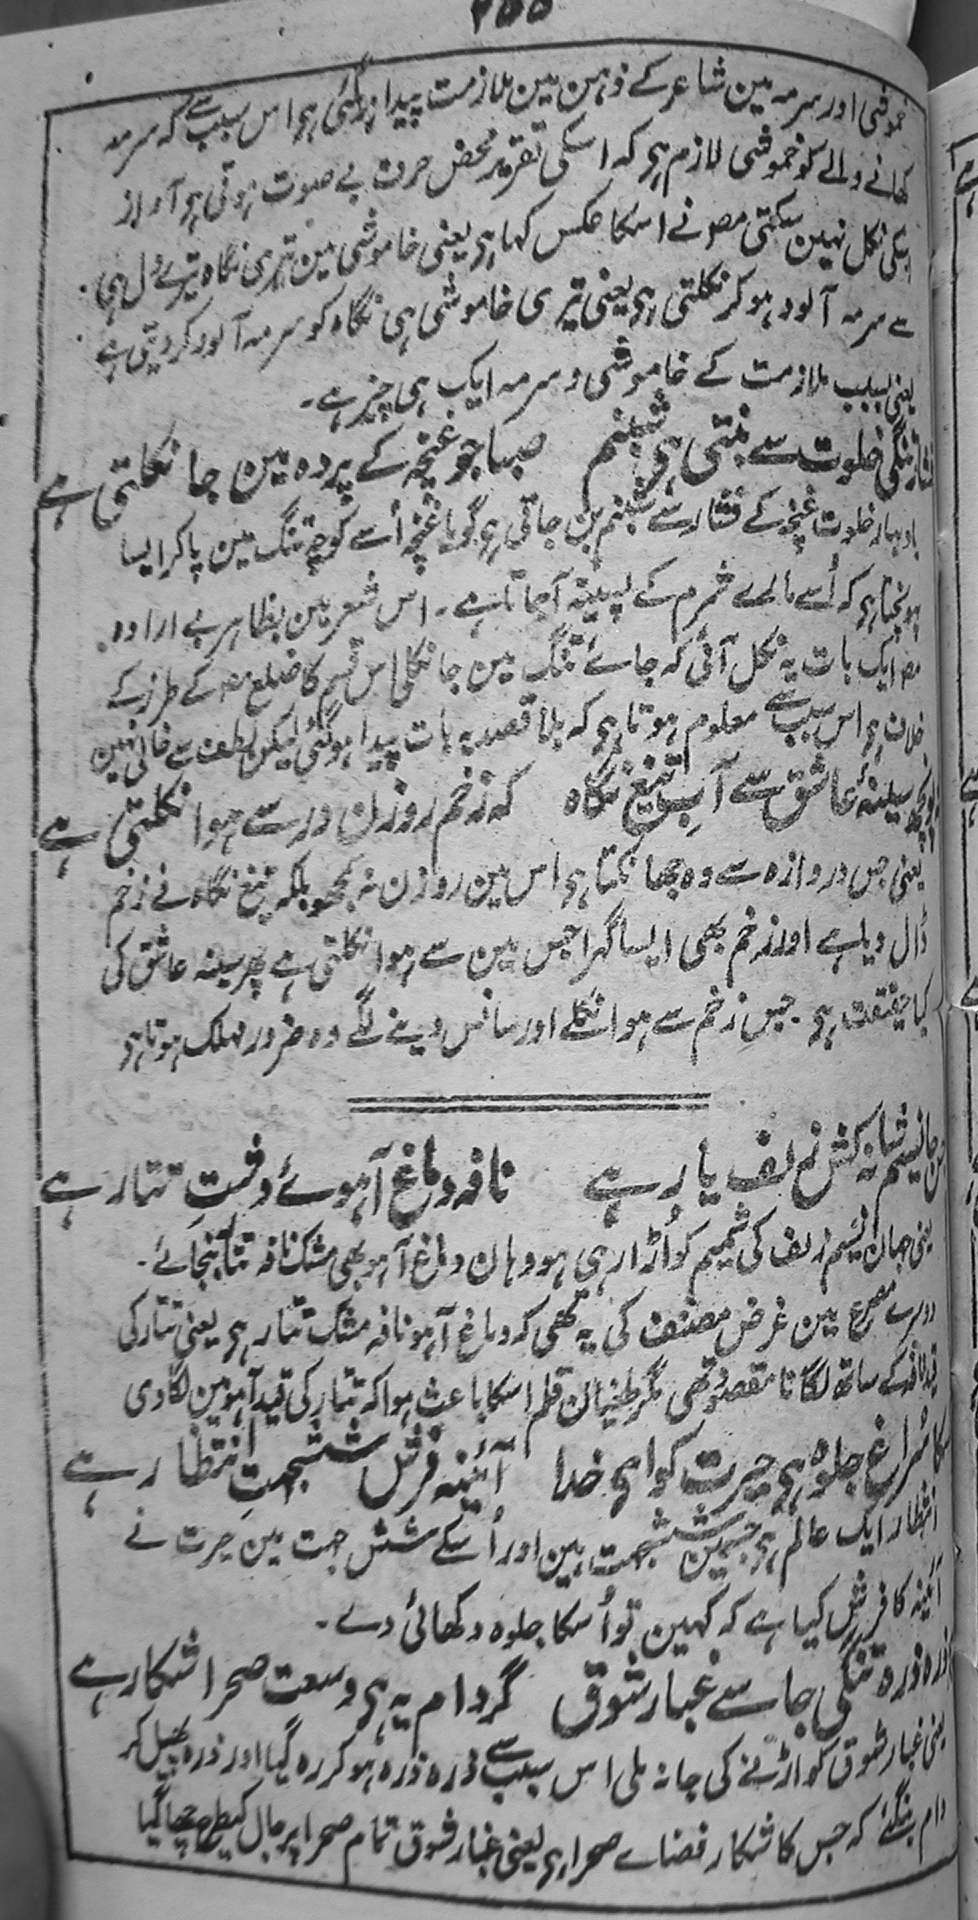 ۲۵۵
خموشی اور سرمہ مین شاعر کے ذہن مین ملازمت پیدا ہوگئی ہو اس سبب سے کہ سرمہ
کھانے والے کو خموشی لازم ہو کہ اسکی تقریر محض حرف بے صوت ہوتی ہو آواز
اسکی نکل نہین سکتی مصنے اسکا عکس کہا ہو یعنی خاموشی مین تیری نگاہ تیرے دل ہی
سے سرمہ آلود ہو کر نکلتی ہو یعنی تیری خاموشی ہی نگاہ کو سرمہ آلود کر دیتی ہے
یعنی بسبب ملازمت کے خاموشی و سرمہ ایک ہی چیز ہے ۔
فشار تنگی خلوت سے بنتی ہی شبنم صبا جو غنچہ کے پردہ مین جا نکلتی ہے
باد بہار خلوت غنچہ کے فشار سے شبنم بن جاتی ہو گویا غنچہ اُسے کوچۂ تنگ مین پاکر ایسا
بھینچتا ہو کہ اُسے مارے شرم کے پسینہ آجاتا ہے ۔ اس شعر مین بظاہر بے ارادہ
مصـ ایک بات یہ نکل آئی کہ جائے تنگ مین جا نکلی اس قسم کا ضلع مصـ کے طرز کے
خلاف ہو اس سبب سے معلوم ہوتا ہو کہ بلا قصد یہ بات پیدا ہوگئی لیکن لطف سے خالی نہین
نہ پوچھ سینۂ عاشق سے آبِ تیغ نگاہ کہ زخم روزن در سے ہوا نکلتی ہے
یعنی جس دروازہ سے وہ جھانکتا ہو اس مین روزن نہ سمجھو بلکہ تیغ نگاہ نے زخم
ڈال دیا ہے اور زخم بھی ایسا گہرا جس مین سے ہوا نکلتی ہے پھر سینہ عاشق کی
کیا حقیقت ہو ۔ جس زخم سے ہوا نکلے اور سانس دینے لگے وہ ضرور مہلک ہوتا ہو
جس جا نسیم شانہ کش زلف یار ہے نافہ دماغ آہوئے دشتِ تتار ہے
یعنی جہان نسیم زلف کی شمیم کو اُڑا رہی ہو وہان دماغ آہو بھی مشک نافہ تتار بنجائے ۔
دوسرے مصرع مین غرض مصنف کی یہ تھی کہ دماغ آہو نافہ مشک تتار ہو یعنی تتار کی
قید نافہ کے ساتھ لگانا مقصود تھی مگر طغیان قلم اسکا باعث ہوا کہ تتار کی قید آہو مین لگا دی
کس کا سُراغ جلوہ ہی حیرت کو اے خدا آئینہ فرش ششجہتِ انتظار ہے
انتظار ایک عالم ہو جسمین ششجہت ہین اور اُسکے شش جہت مین حیرت نے
آئینہ کا فرش کیا ہے کہ کہین تو اُسکا جلوہ دکھائی دے ۔
ہی ذرہ ذرہ تنگی جا سے غبار شوق گر دام یہ ہی وسعت صحرا شکار ہے
یعنی غبار شوق کو اڑنے کی جا نہ ملی اس سبب سے ذرہ ذرہ ہو کر رہ گیا اور ذرہ پھیل کر
دام بنگئے کہ جس کا شکار فضاے صحرا ہو یعنی غبار شوق تمام صحرا پر جال کیطرح چھا گیا